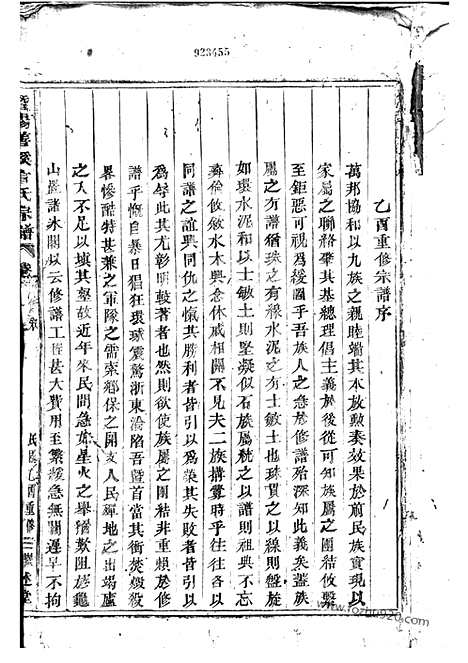 923455
乙酉重修宗譜序
萬邦協和以九族之親睦端其本放勳奏效果於前民族實現以
家屬之聯絡舉其基總理倡主義於後從可知族屬之團結攸繫
至鉅惡可視為緩圖乎吾族人之急於修譜殆深知此義矣蓋族
屬之有譜猶珠之有線水泥之有士敏土也珠貫之以線則盤旋
如環水泥和以士敏土則堅凝似石族屬統之以譜則祖典不忘
彝倫攸敘水木興念休戚相關不見夫二族搆釁時乎往往一以
同譜之誼興同仇之懷其勝利者皆引以為榮其失敗者皆引以
為辱此其尤彰明較著者也然則欲使族屬之團結非重賴於修
譜乎慨自暴日猖狂環球震驚浙東淪陷吾暨首當其衝焚燬殺
畧慘酷特甚兼之軍隊之需索鄉保之開支人民彈地之出竭廬
之入不足以填其壑故近年來民間急如星火之舉猶歎阻於龜
山鑿諸冰閣以云修譜工程甚大費用至繁緩急無關遲早不拘
暨陽善溪 氏宗譜 卷
民國乙酉重修
www.fozhu920.com